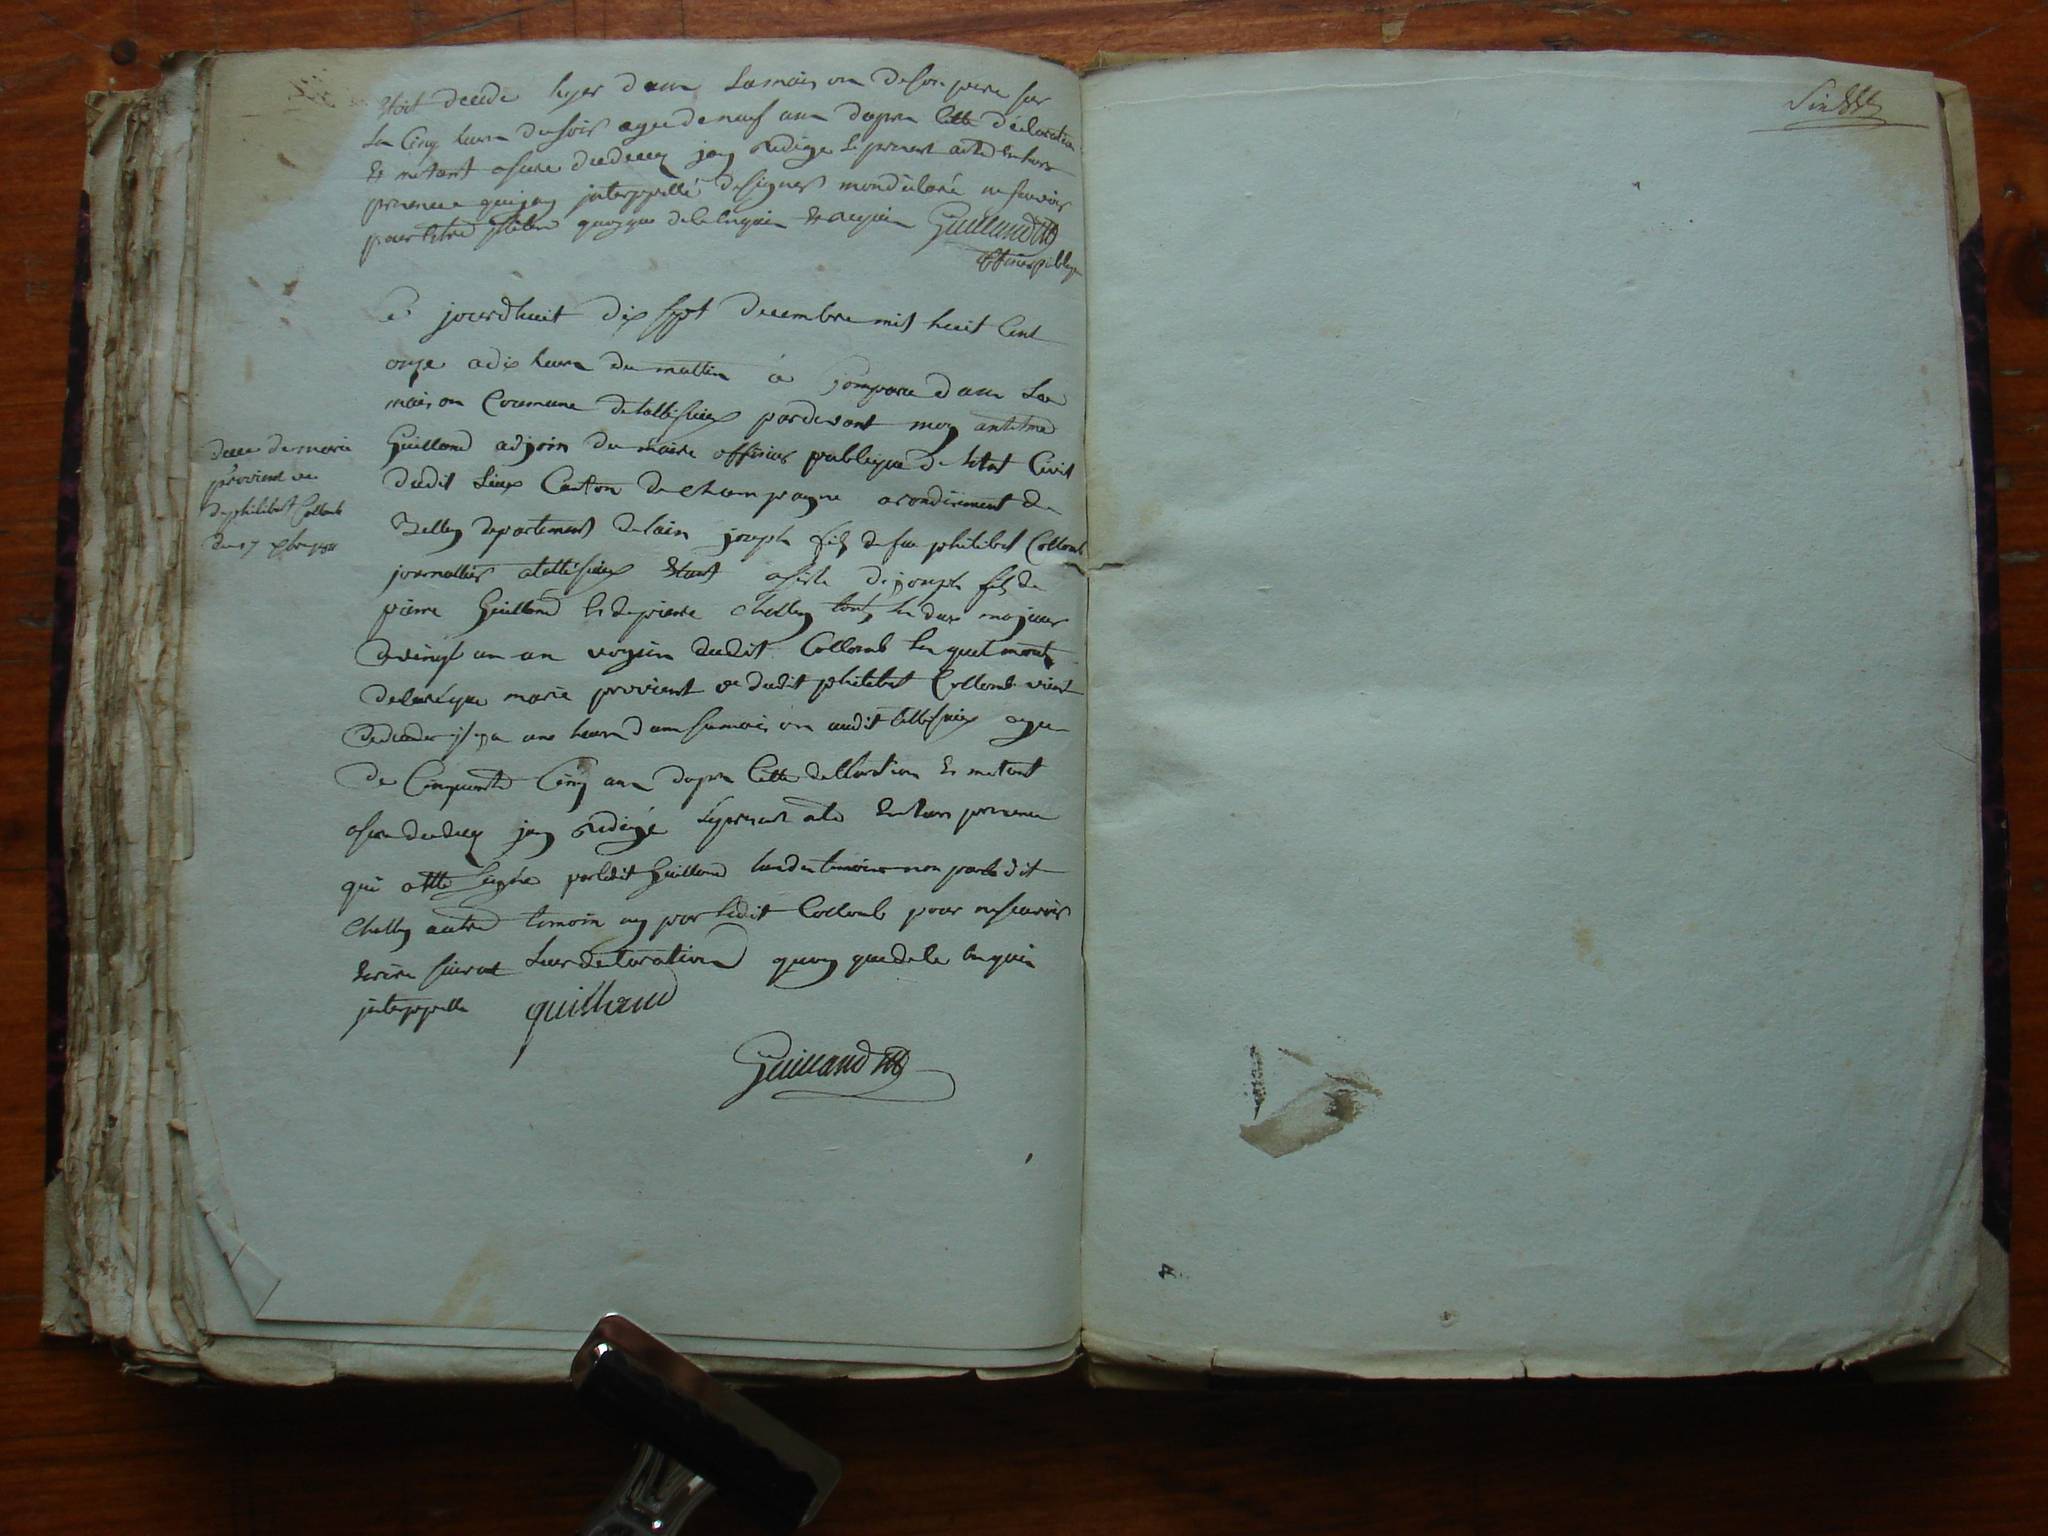 étoit decede hyer dans la maison de son pere sur
les cinq heures du soir agee de neuf ans dapres cette déclaration
Et m'étant assure du deces jay Rédigé le present acte en leurs
presence qui jay interppellé de signer mon déclaré ne savoir
pour être illetere quoyque de le enquis Et requis Guilland
officier publique
Ce jourdhuit dix sept decembre mil huit Cent
onze a dix heures du mattin à comparu dans La
maison Commune de tallissieux pardevant moy antelme
Guilland adjoin du maire officier publique de létat Civil
dudit Lieux Canton de champagne arondisement de
Belley departement de lain joseph fils de feu philibert Collomb
journallier a tallissieux Etant assisté de joseph fils de
pierre Guilland Et de pierre Chelley touts les deux majeurs
de vingt un an voysin dudit Collomb Lesquel mont
declaré que marie provient ve dudit philibert Collomb vient
de deceder il y a une heure dans sa maison audit tallissieux agee
de Cinquante Cinq ans dapres cette dellaration Et m'etant
assure du deces jay Rédigé le present acte En leurs presence
qui a été Signé par ledit Guilland lun des temoins non par le dit
Chelley autre temoin ny par ledit Collomb pour ne savoir
Ecrire suivant Leur déclaration quoy que de le enquis
interppelle guilland
Guilland
deces de marie
provient ve
de philibert Collomb
du 17 xbre 1811